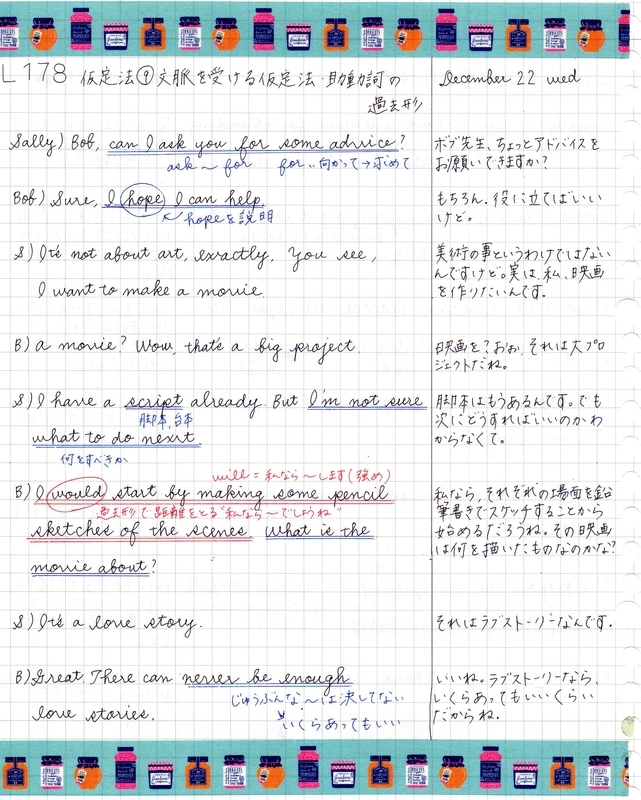 L178 仮定法⑨文脈を受ける仮定法・助動詞の
過去形
December 22 wed
Sally) Bob, can I ask you for some advice?
ask ~ for for‥向かって→求めて
ボブ先生、ちょっとアドバイスを
お願いできますか?
Bob) Sure, I hope I can help.
hopeを説明
もちろん。役に立てばいい
けど。
S) It's not about art, exactly. You see,
I want to make a movie.
美術の事というわけではない
んですけど。実は、私、映画
を作りたいんです。
B) A movie? Wow, that's a big project.
映画を?おお、それは大プロ
ジェクトだね。
S) I have a script already. But I'm not sure
脚本、台本
what to do next.
何をすべきか
脚本はもうあるんです。でも
次にどうすればいいのかわ
からなくて。
will = 私なら~します(強め)
B) I would start by making some pencil
過去形で距離をとる"私なら~でしょうね"
sketches of the scenes. What is the
movie about?
私なら、それぞれの場面を鉛
筆書きでスケッチすることから
始めるだろうね。その映画
は何を描いたものなのかな?
S) It's a love story.
それはラブストーリーなんです。
B) Great. There can never be enough
じゅうぶんな~は決してない
love stories.
いくらあってもいい
いいね。ラブストーリーなら、
いくらあってもいいくらい
だからね。